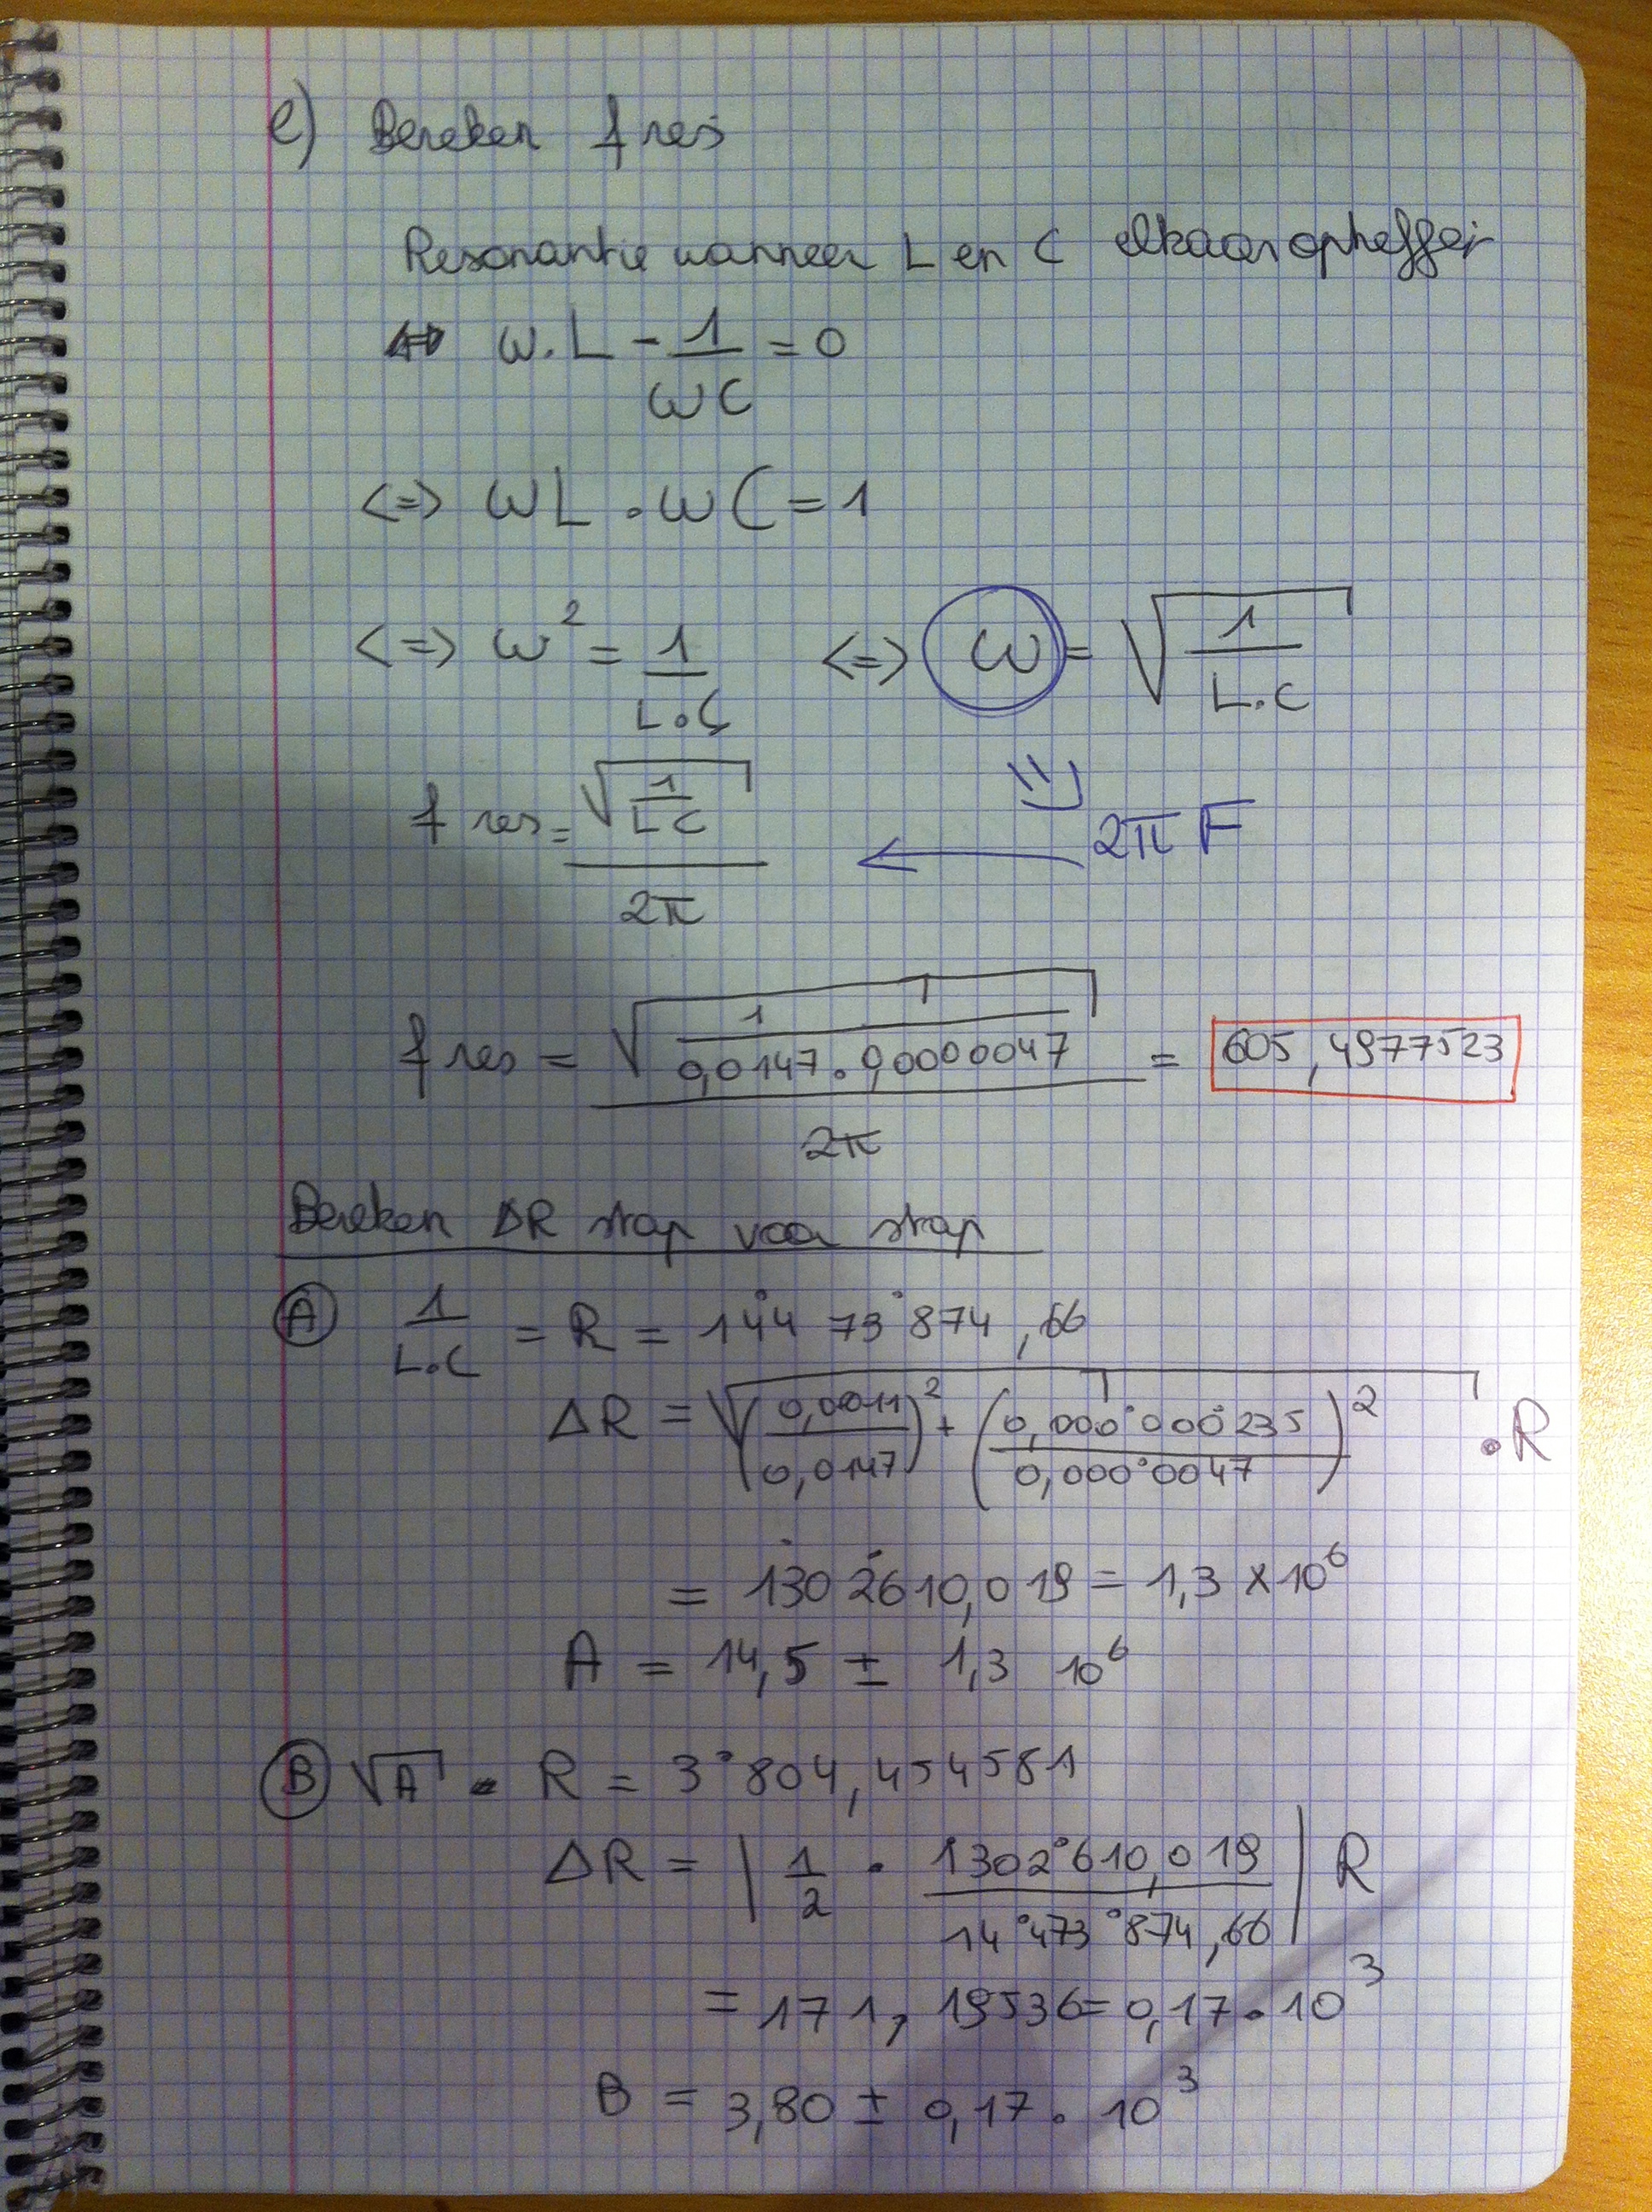 e) Bereken f res
Resonantie wanneer L en C elkaar opheffen
<=> ω.L - 1/ωC = 0
<=> ωL . ωC = 1
<=> ω² = 1/L.C <=> ω = √(1/L.C)
f res = √(1/LC) / 2π ← 2πF
f res = √(1/0,0147.0,0000047) / 2π = 605,4977523
Bereken ΔR stap voor stap
(A) 1/L.C = R = 14°473°874,66
ΔR = √((0,0011/0,0147)² + (0,000°000°235/0,000°0047)²) . R
= 1302610,019 = 1,3 x 10⁶
A = 14,5 ± 1,3 10⁶
(B) √A - R = 3°804,454581
ΔR = | 1/2 . 1302°610,019/14°473°874,66 | R
= 171,19536 = 0,17.10³
B = 3,80 ± 0,17. 10³